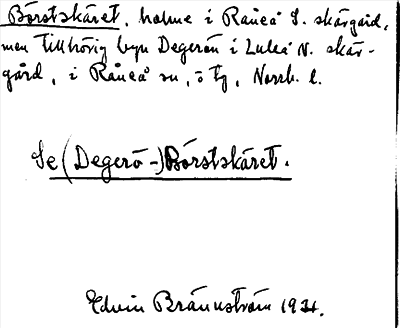 Börstskäret, holme i Råneå S. skärgård,
men tillhörig byn Degerön i Luleå N. skär-
gård, i Råneå sn, ö tg, Norrb. l.
Se (Degerö-)Börstskäret.
Edvin Brännström 1931.